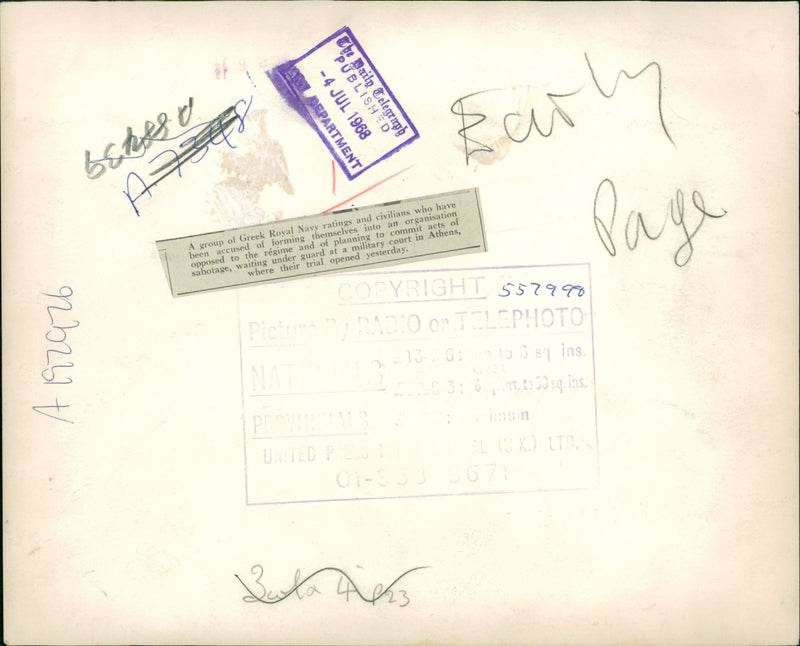 The Daily Telegraph
PUBLISHED
-4 JUL 1968
DEPARTMENT
A 7348
Early
Page
A group of Greek Royal Navy ratings and civilians who have
been accused of forming themselves into an organisation
opposed to the régime and of planning to commit acts of
sabotage, waiting under guard at a military court in Athens,
where their trial opened yesterday.
COPYRIGHT 557998
Picture By RADIO or TELEPHOTO
NATIONALS
sq ins.
sq.ins. to 50 sq.ins.
PROVINCIALS
UNITED
(U.K.) LTD.
A 192926